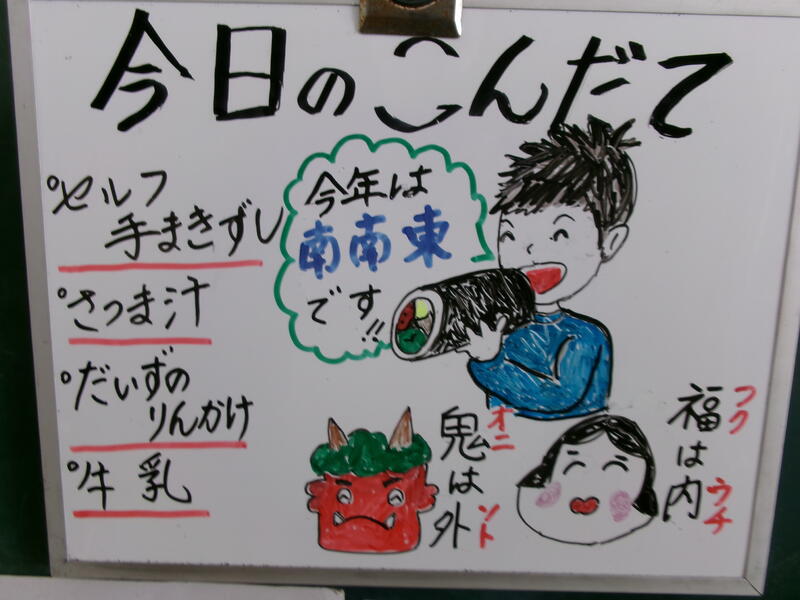 今日のこんだて
°セルフ
手まきずし
°さつま汁
°だいずの
りんかけ
°牛乳
今年は
南南東
です!!
鬼は外
オニ
ソト
福は内
フク
ウチ